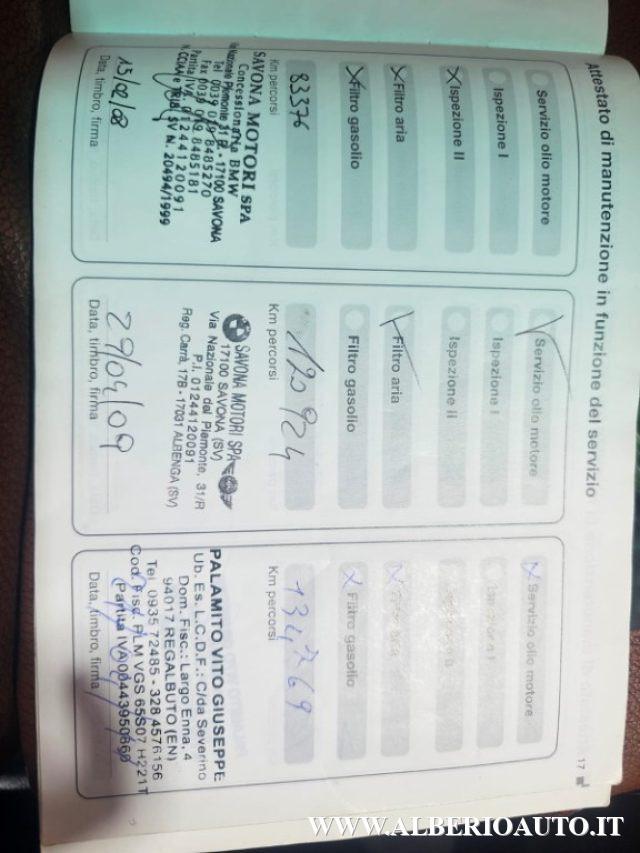 Attestato di manutenzione in funzione del servizio
Servizio olio motore
Ispezione I
Ispezione II
Filtro aria
Filtro gasolio
83376
Km percorsi
SAVONA MOTORI SPA
Concessionaria BMW
Via Nazionale Piemonte 31 R - 17100 SAVONA
Tel 0039 019 8485270
Fax 0039 019 8485181
Partita IVA 01244120091
15/02/08
Data, timbro, firma
Servizio olio motore
Ispezione I
Ispezione II
Filtro aria
Filtro gasolio
120924
Km percorsi
SAVONA MOTORI SPA
17100 SAVONA (SV)
Via Nazionale del Piemonte, 31/R
P.I. 01244120091
Reg. Carrà, 17B - 17031 ALBENGA (SV)
29/04/09
Data, timbro, firma
Servizio olio motore
Ispezione I
Filtro aria
Filtro gasolio
134769
Km percorsi
PALAMITO VITO GIUSEPPE
Ub. Es. L.C.D.F.: C/da Severino
Dom. Fisc.: Largo Enna, 4
94017 REGALBUTO (EN)
Tel 0935 72485 - 328 4576156
Cod. Fisc. PLM VGS 65S07 H221T
Partita IVA 00443950860
Data, timbro, firma
17
WWW.ALBERIOAUTO.IT